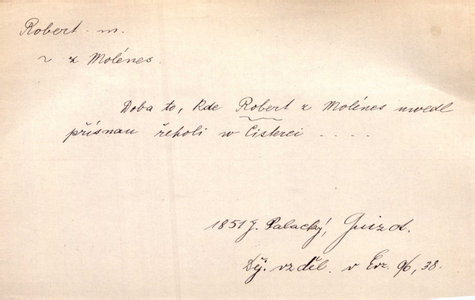 Robert m.
~ z Molénes.
Doba to, kde Robert z Molénes uwedl
přísnau řeholi w Cisterci . . . .
1851 J. Palacký, Guizot.
Děj. vzděl. v Evr. 96, 38.